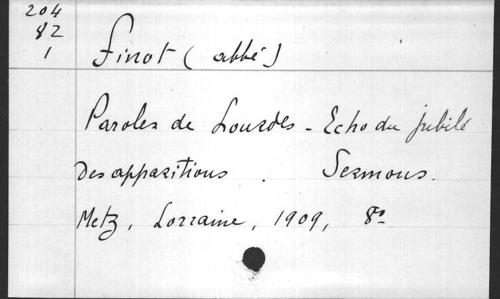 204
82
1
Finot (abbé)
Paroles de Lourdes - Echo du jubilé
des apparitions. Sermons.
Metz, Lorraine, 1909, 8º